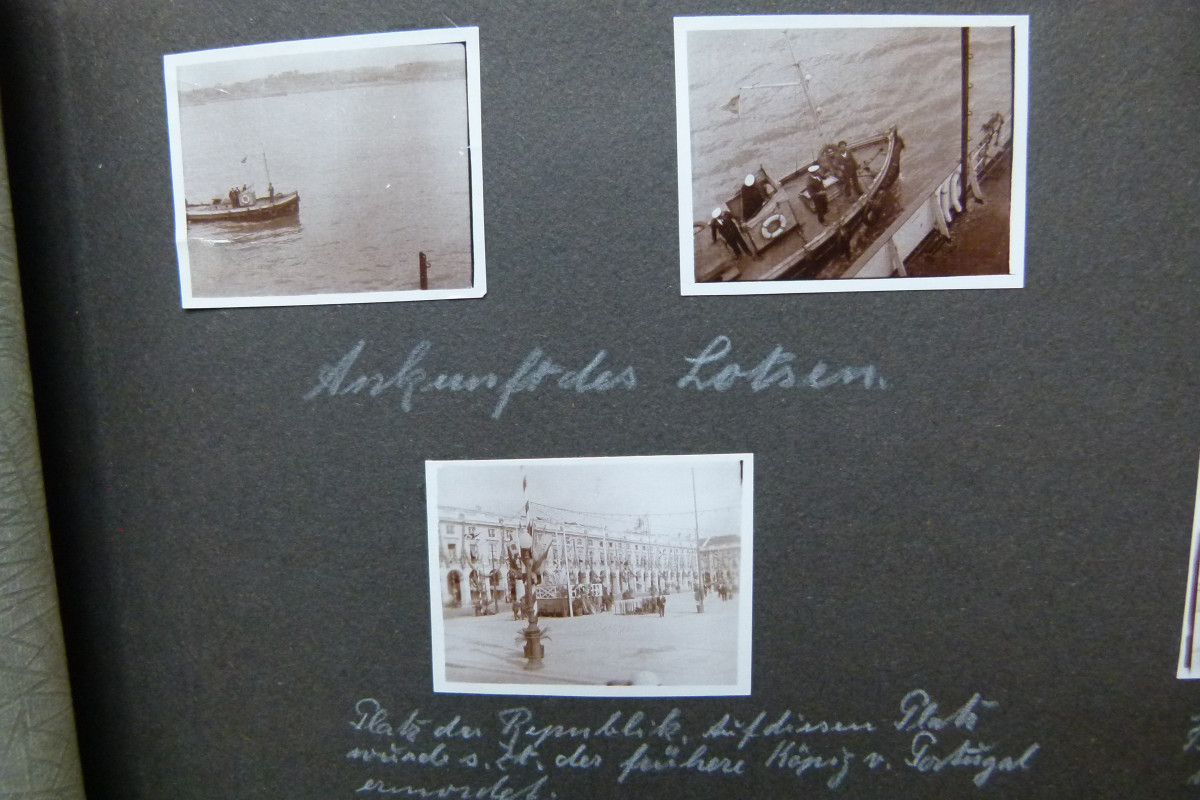 Ankunft des Lotsen.
Platz der Republik. Auf diesem Platz
wurde s. Zt. der frühere König v. Portugal
ermordet.